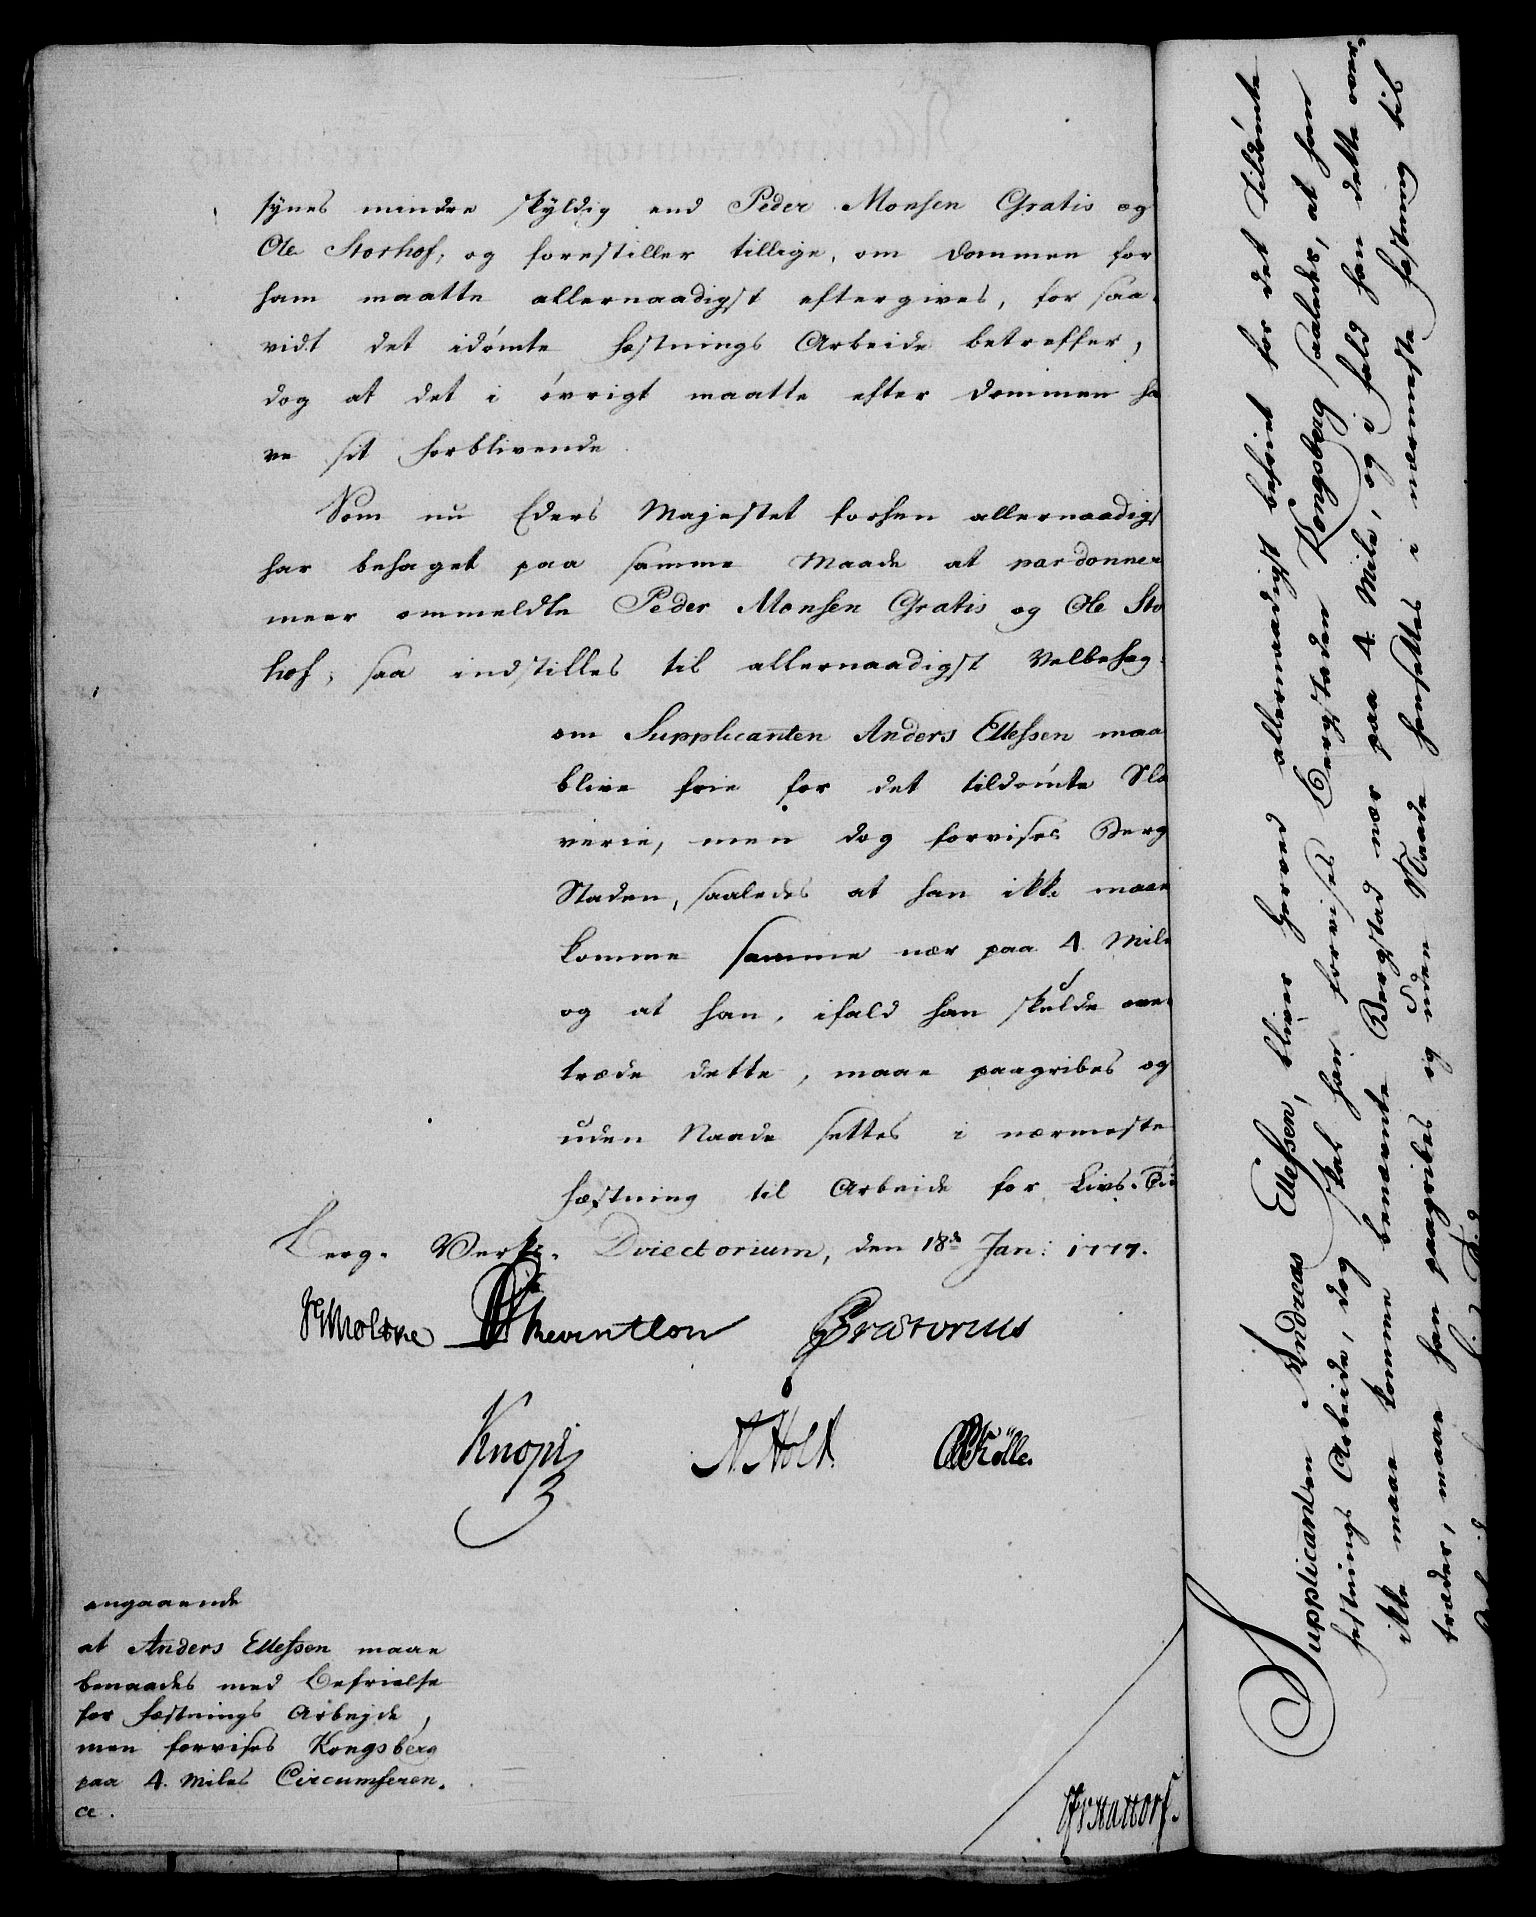 synes mindre skyldig end Peder Monsen Gratis og
Ole Storhof, og forestiller tillige, om Dommen for
ham maatte allernaadigst eftergives, for saa-
vidt det idømte Fæstnings Arbeide betreffer,
dog at det i øvrigt maatte efter Dommen ha
ve sit Forblivende
Som nu Eders Majestet forhen allernaadigst
har behaget paa samme Maade at pardonner
meer ommeldte Peder Monsen Gratis og Ole Sto
hof; saa indstilles til allernaadigst Velbehag.
om Supplicanten Anders Ellefsen maa
blive frie for det tildømte Sla
verie, men dog forvises Berg
Staden, saaledes at han ikke maae
komme samme nær paa 4 Mile
og at han, ifald han skulde over
træde dette, maae paagribes og
uden Naade settes i nærmeste
Fæstning til Arbeide for Livs-Tiid
Berg-Verks-Directorium, den 18de Jan: 1777.
Moltke Reventlou Prætorius
Knoph N. Holt
angaaende
at Anders Ellefsen maae
benaades med Befrielse
for Fæstnings Arbejde,
men forvises Kongsberg
paa 4. Miles Circumferen-
ce.
Supplicanten Andreas Ellefsen, bliver herved allernaadigst befriet for det tildømte
Festnings Arbeide, dog skal han forvises Bergstaden Kongsberg saaledes, at han
ikke maae komme benævnte Bergstad nær paa 4 Mile, og i fald han dette over-
træder, maae han paagribes og uden Naade hensettes i nærmeste Festning til